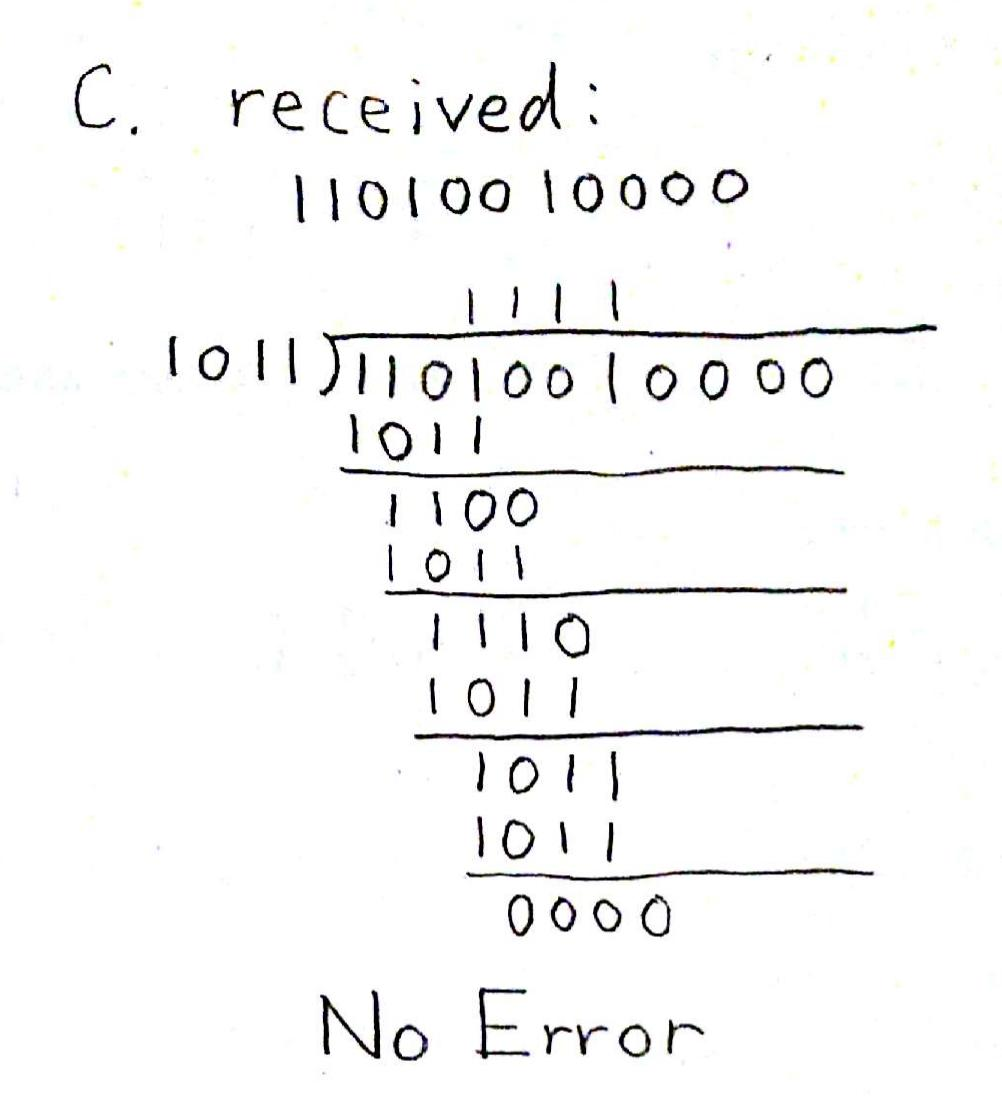 C. received:
11010010000
1111
1011)11010010000
1011
1100
1011
1110
1011
1011
1011
0000
No Error